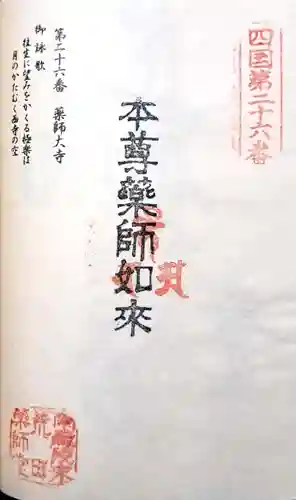 四国第二十六番
本尊薬師如來
第二十六番　薬師大寺
御詠歌
往生に望みをかくる極楽は
月のかたむく西寺の空